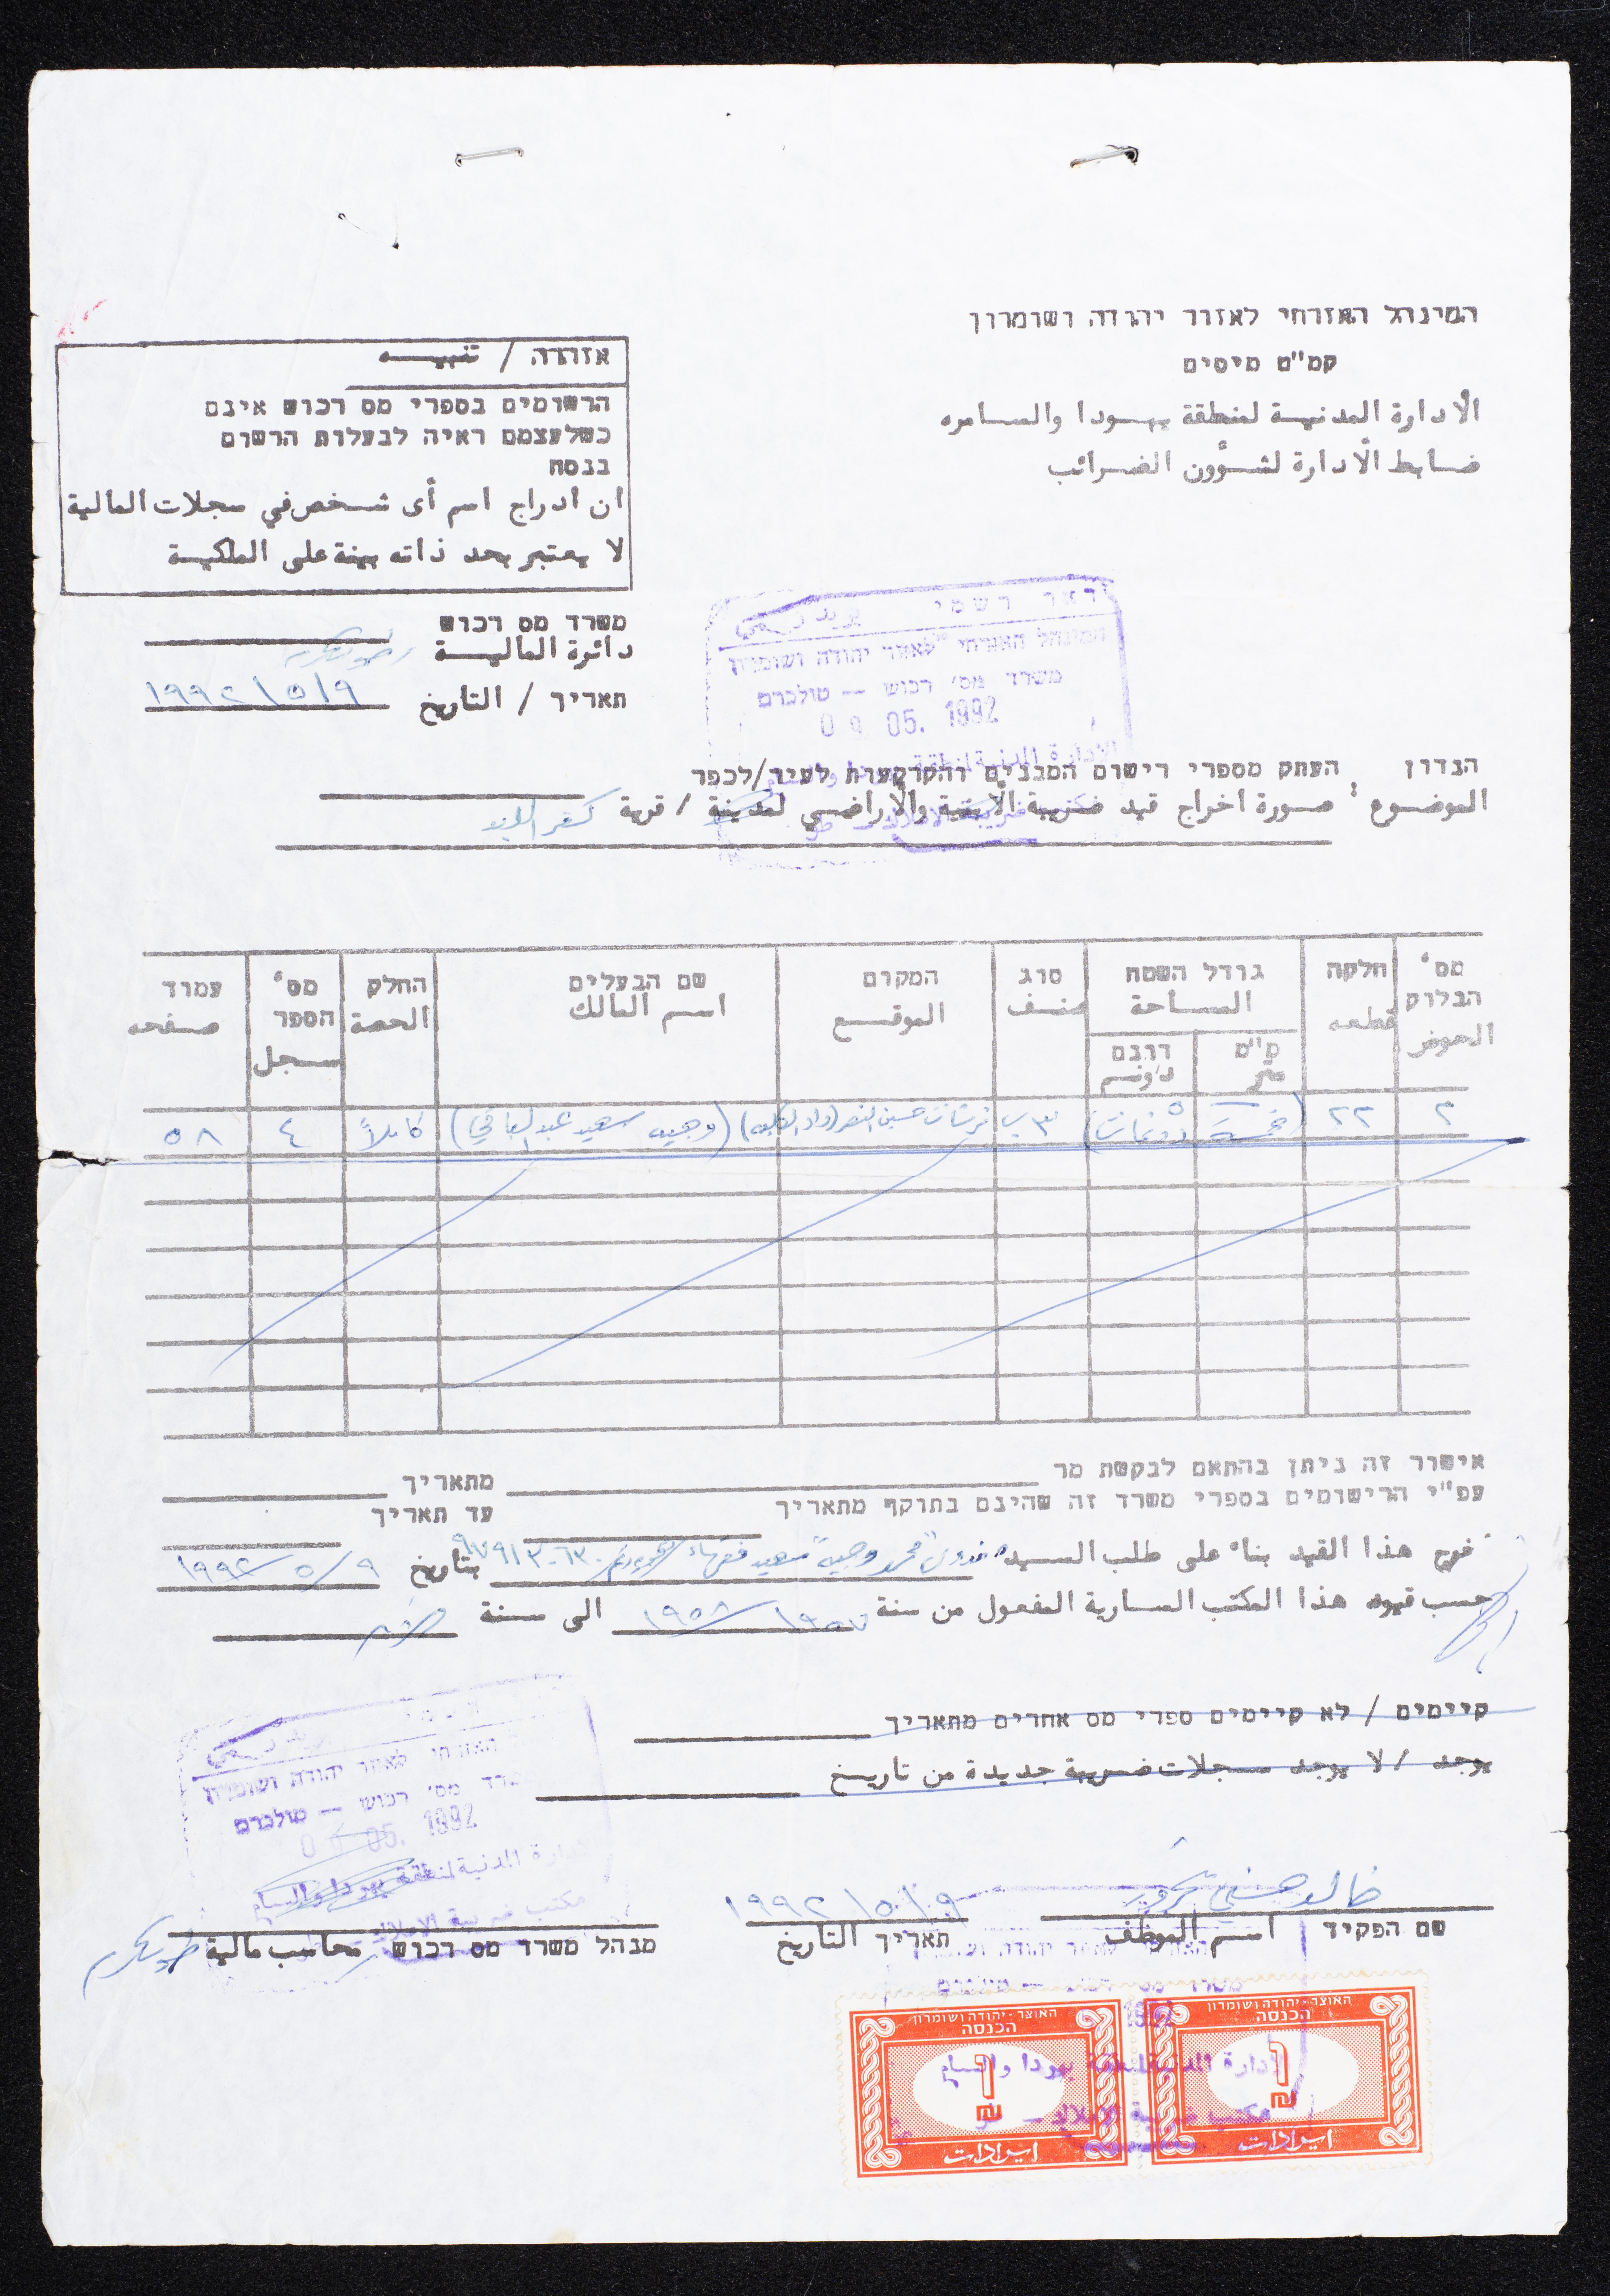 המינהל האזרחי לאזור יהודה ושומרון
קמ"ט מיסים
الادارة المدنية لمنطقة يهودا والسامره
ضابط الادارة لشؤون الضرائب
אזהרה / تنبيه
הרשומים בספרי מס רכוש אינם
כשלעצמם ראיה לבעלות הרשום
בנסח
ان ادراج اسم أى شخص في سجلات المالية
لا يعتبر بحد ذاته بينة على الملكية
משרד מס רכוש
دائرة المالية طولكرم
תאריך / التاريخ ١٩٩٢/٥/٩
דאר רשמי بريد رسمي
המינהל האזרחי לאזור יהודה ושומרון
משרד מס' רכוש — טולכרם
09 05. 1992
הנדון העתק מספרי רישום המבנים והקרקעות לעיר/לכפר
الموضوع : صورة اخراج قيد ضريبة الأبنية والأراضي لمدينة / قرية كفر اللبد
מס' הבלוק الحوض
חלקה قطعه
גודל השטח المساحة
מ"מ متر
דונם دونم
סוג صنف
המקום الموقع
שם הבעלים اسم المالك
החלק الحصة
מס' הספר سجل
עמוד صفحه
٢ ٢٢ (خمسة دونمات) ٥ ٣ب (وجيه سعيد عبد الباقي) كاملاً ٤ ٥٨
אישור זה ניתן בהתאם לבקשת מר מתאריך
עפ"י הרישומים בספרי משרד זה שהינם בתוקף מתאריך עד תאריך
خرج هذا القيد بناء على طلب السيد "محمد وجيه" سعيد فقهاء بتاريخ ١٩٩٢/٥/٩
حسب قيود هذا المكتب السارية المفعول من سنة ١٩٥٧/١٩٥٨ الى سنة
קיימים / לא קיימים ספרי מס אחרים מתאריך
يوجد / لا يوجد سجلات ضريبة جديدة من تاريخ
האזרחי לאזור יהודה ושומרון
משרד מס' רכוש — טולכרם
05. 1992
الادارة المدنية لمنطقة يهودا والسام
مكتب ضريبة الاملاك
خالد حسني
١٩٩٢/٥/٩
שם הפקיד اسم الموظف
תאריך التاريخ
מנהל משרד מס רכוש محاسب مالية طولكرم
האוצר - יהודה ושומרון
הכנסה
1
ايرادات
האוצר - יהודה ושומרון
הכנסה
1
ايرادات
الادارة المدنية لمنطقة يهودا والسام
مكتب ضريبة الاملاك